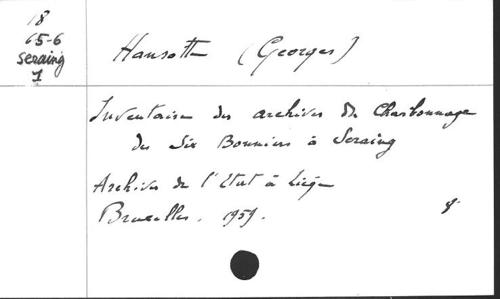 18
65-6
Seraing
1
Hansotte (Georges)
Inventaire des archives du Charbonnage
des Six Bonniers à Seraing
Archives de l'Etat à Liège
Bruxelles. 1959.
8°